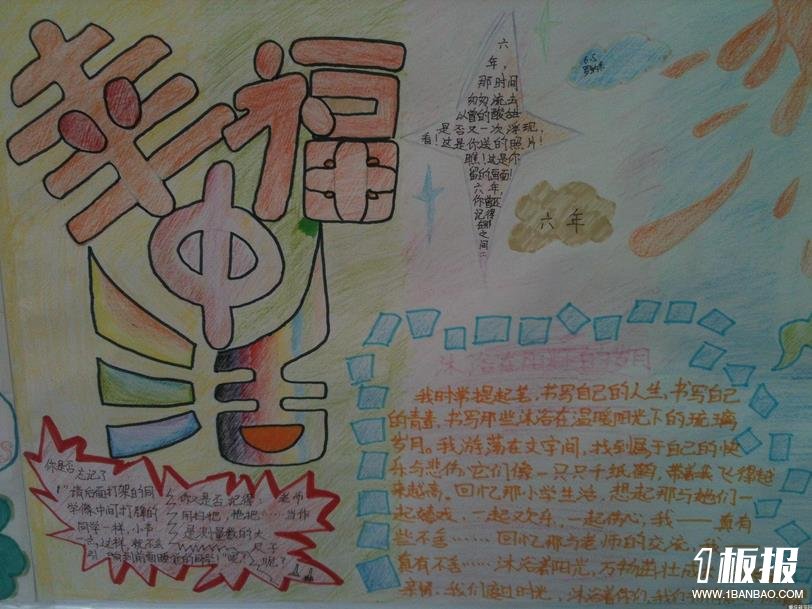 幸福
中
活
六
年，
那时间
匆匆流去
从前的酸甜
是否又一次浮现，
看！这是你送的照片！
瞧！这是你
留的画面！
六年，
你曾
记得
那
之间
六年
沐浴在阳光下的岁月
我时常提起笔，书写自己的人生，书写自己
的青春，书写那些沐浴在温暖阳光下的琉璃
岁月。我游荡在文字间，找到属于自己的快
乐与悲伤。它们像一只只千纸鹤，带着我飞得越
来越高。回忆那小学生活，想起那与她们一
起嬉戏，一起欢乐，一起伤心，我——真有
些不舍……回忆那与老师的交流，我
真有不舍……沐浴着阳光，万物茁壮成
你是否
忘记了
"请后面打架的同
学像中间打牌的
同学一样，小声
一点，这样，就不会
你又是否记得：老师
用扫把，拖把……当作
是测量数的大
尺子
1板报
WWW.1BANBAO.COM